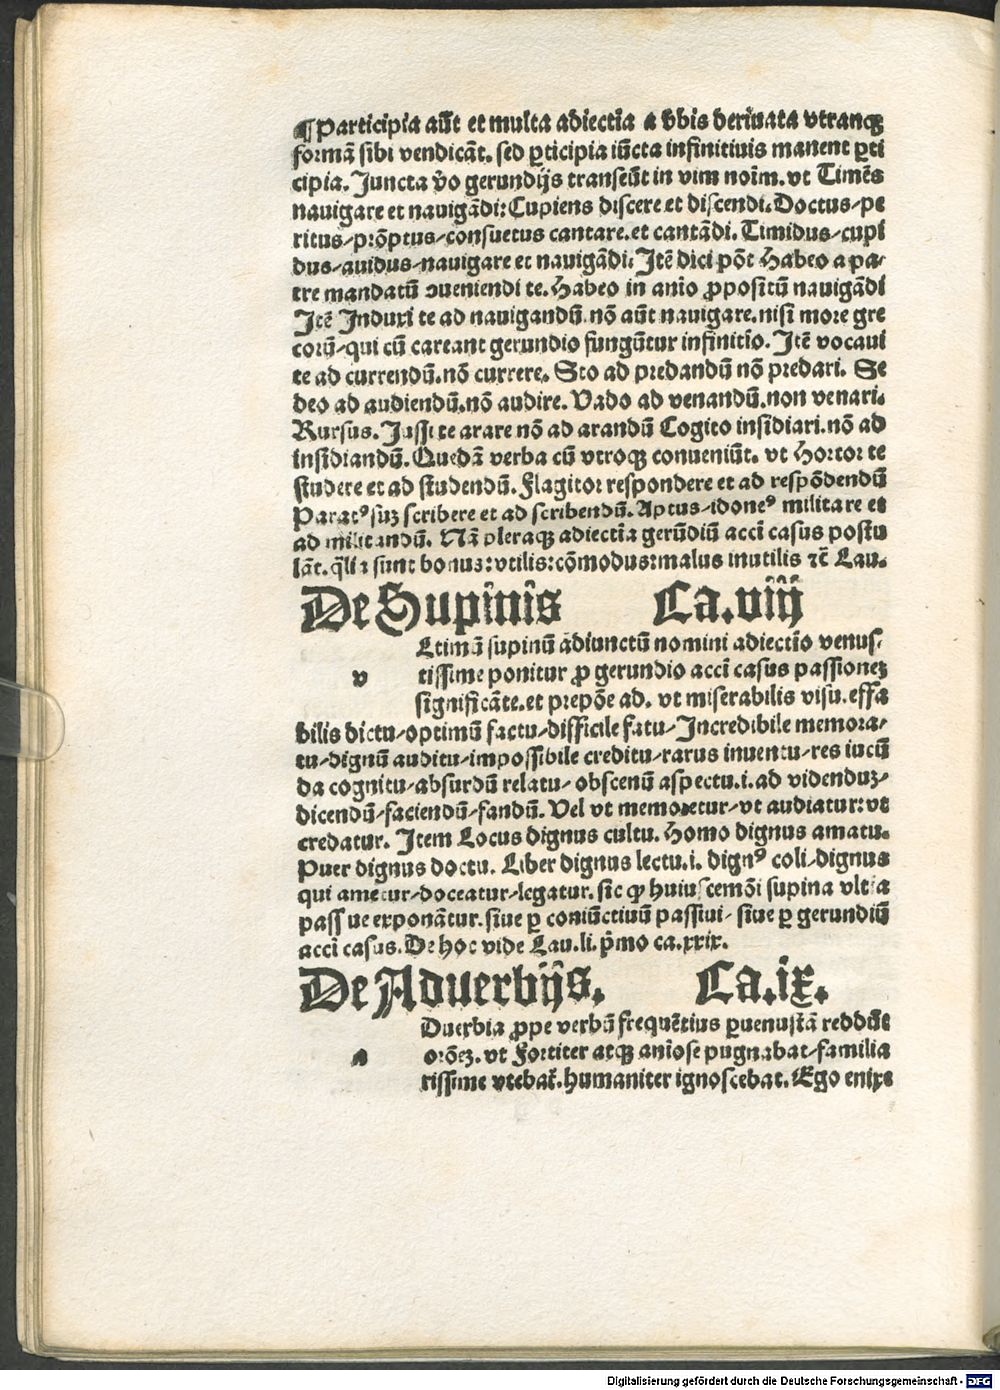 ¶ Participia aūt et multa adiectīa a v̄bis deriuata vtranqꝫ
formā sibi vendicāt. sed ꝑticipia iūcta infinitiuis manent ꝑti
cipia. Juncta v̄o gerundijs transeūt in vim noīm. vt Timēs
nauigare et nauigādi: Cupiens discere et discendi. Doctus/pe
ritus/prōptus/consuetus cantare. et cantādi. Timidus/cupi
dus/auidus/nauigare et nauigādi. Itē dici pōt Habeo a pa/
tre mandatū ꝯueniendi te. Habeo in anīo ꝓpositū nauigādi
Itē Induxi te ad nauigandū. nō aūt nauigare. nisi more gre
corū/qui cū careant gerundio fungūtur infinitīo. Itē vocaui
te ad currendū. nō currere. Sto ad predandū nō predari. Se
deo ad audiendū. nō audire. Vado ad venandū. non venari.
Rursus. Jussi te arare nō ad arandū Cogito insidiari. nō ad
insidiandū. Quedā verba cū vtroqꝫ conueniūt. vt Hortor te
studere et ad studendū. Flagitor respondere et ad respōdendū
Paratꝰ suꝫ scribere et ad scribendū. Aptus/idoneꝰ militare et
ad militandū. Nā pleraqꝫ adiectīa gerūdiū accī casus postu
lāt. q̄lia sunt bonus: vtilis: cōmodus: malus inutilis ⁊c̄ Lau.
De Supinis Ca. viij
Ltimū supinū adiunctū nomini adiectīo venus/
v tissime ponitur ꝓ gerundio accī casus passioneꝫ
significāte. et prepōe ad. vt miserabilis visu. effa
bilis dictu/optimū factu/difficile fatu/Incredibile memora/
tu/dignū auditu/impossibile creditu/rarus inuentu/res iucū
da cognitu/absurdū relatu/obscenū aspectu. i. ad videnduꝫ/
dicendū/faciendū/fandū. Vel vt memoretur/vt audiatur: vt
credatur. Item Locus dignus cultu. Homo dignus amatu.
Puer dignus doctu. Liber dignus lectu. i. dignꝰ coli/dignus
qui ametur/doceatur/legatur. sic ꝙ huiuscemōi supina vltīa
passiue exponātur. siue ꝑ coniūctiuū passiui/ siue ꝑ gerundiū
accī casus. De hoc vide Lau. li. p̄mo ca. xxix.
De Aduerbijs. Ca. ix.
Duerbia ꝓpe verbū frequētius ꝑuenustā reddūt
a orōeꝫ. vt Fortiter atqꝫ anīose pugnabat/familia
rissime vtebat̄. humaniter ignoscebat. Ego enixe
Digitalisierung gefördert durch die Deutsche Forschungsgemeinschaft - DFG